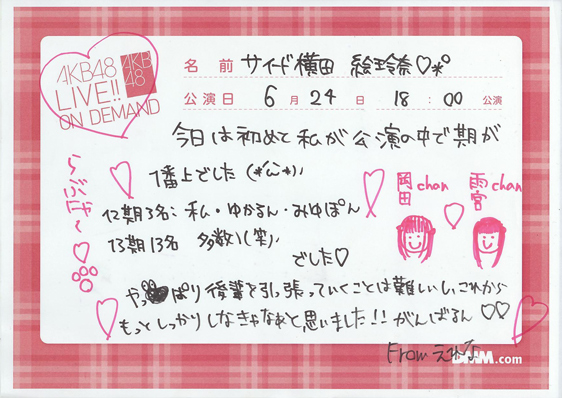 AKB48
LIVE!!
ON DEMAND
AKB
48
名前 サイード横田 絵玲奈♡
公演日 6月24日 18:00公演
今日は初めて私が公演の中で期が
1番上でした(*´ω`*)ﾉ
12期3名:私・ゆかるん・みゆぽん
13期13名 多数!(笑)
でした♡
やっぱり後輩を引っ張っていくことは難しいし、これから
もっとしっかりしなきゃなぁと思いました!!がんばるん♡♡
岡田chan
雨宮chan
From えれな
DMM.com